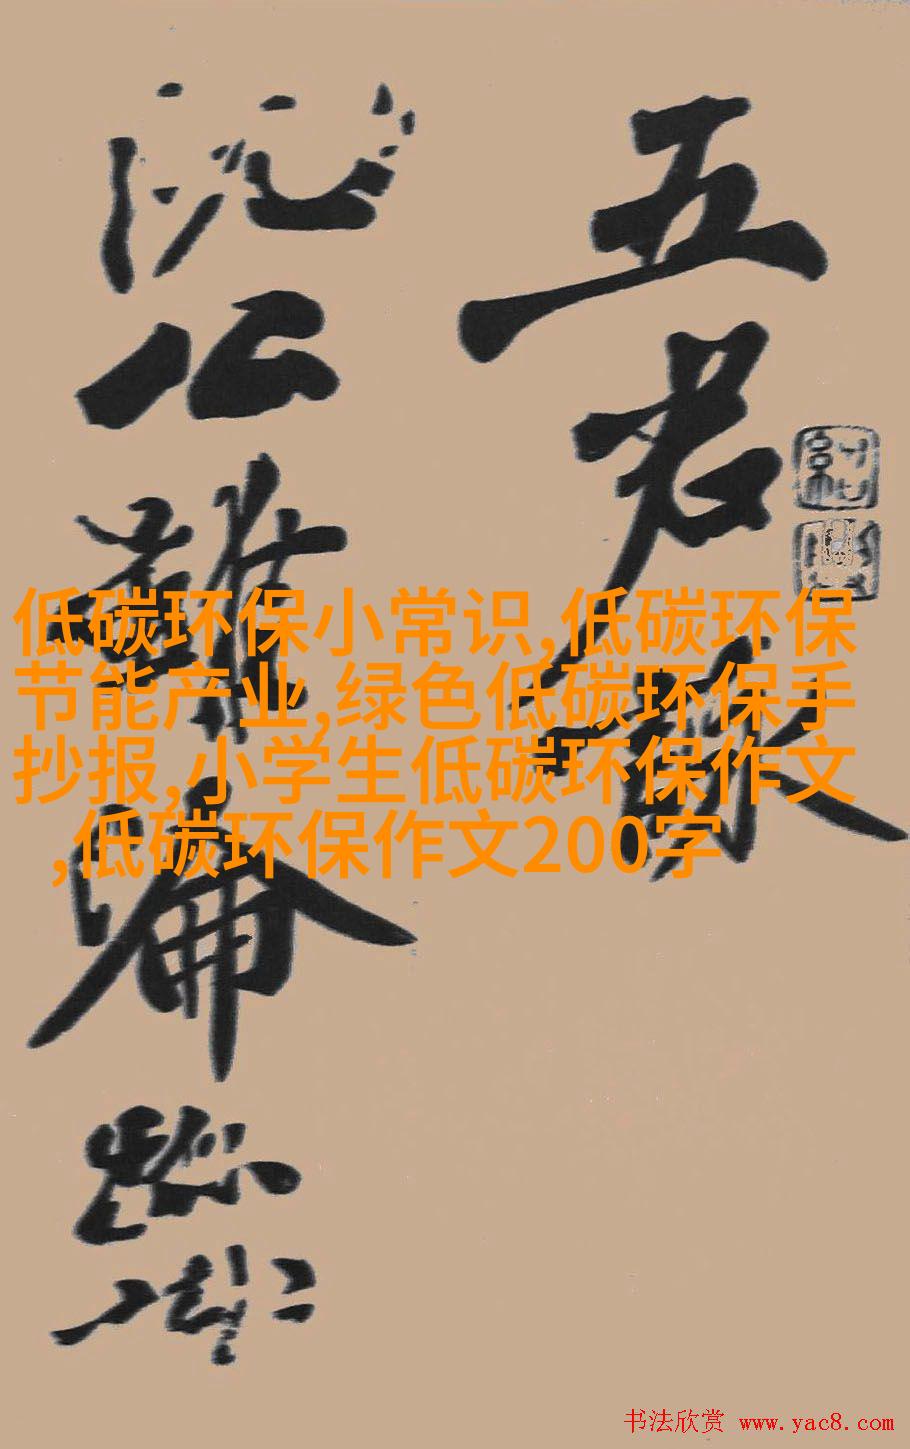 五君詠
沉公難論
低碳环保小常识,低碳环保
节能产业,绿色低碳环保手
抄报,小学生低碳环保作文
,低碳环保作文200字
书法欣赏 www.yac8.com